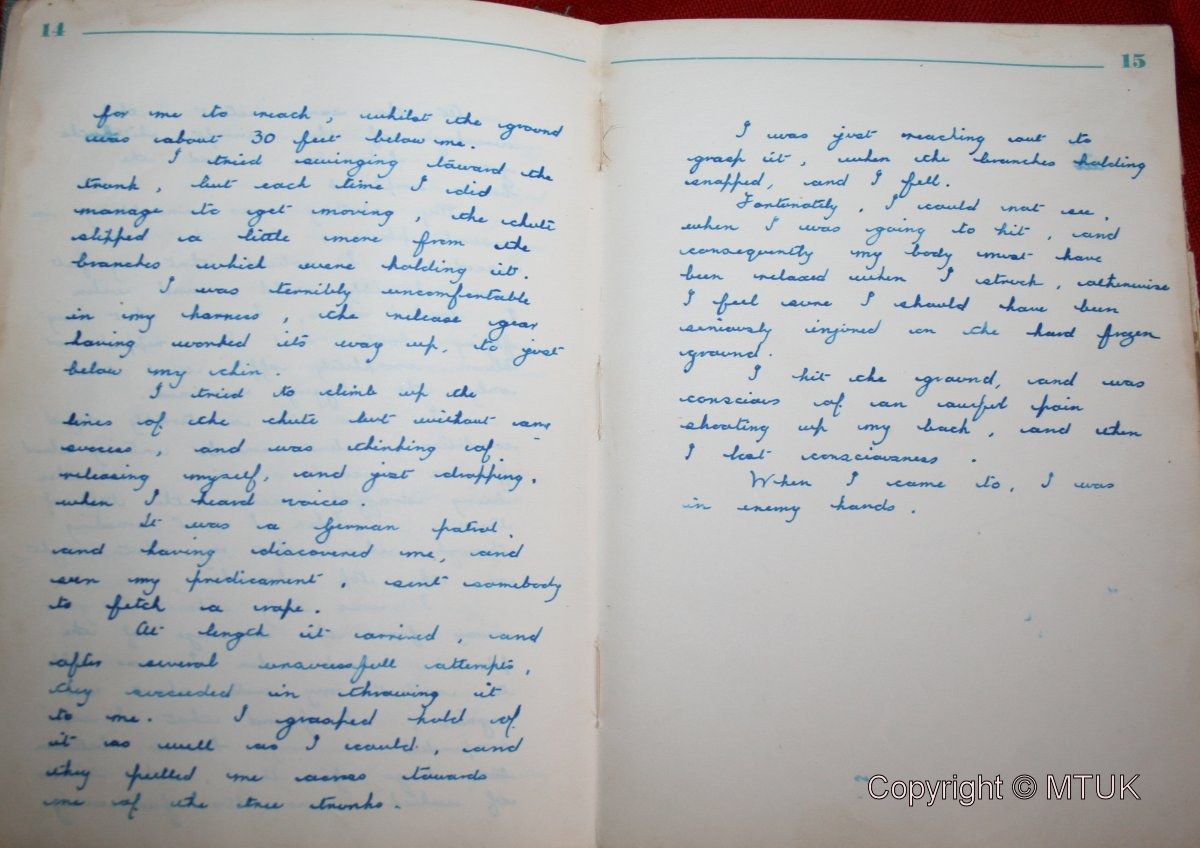 14
for me to reach, whilst the ground
was about 30 feet below me.
I tried swinging toward the
trunk, but each time I did
manage to get moving, the chute
slipped a little more from the
branches which were holding it.
I was terribly uncomfortable
in my harness, the release gear
having worked its way up, to just
below my chin.
I tried to climb up the
lines of the chute but without any
success, and was thinking of
releasing myself, and just dropping,
when I heard voices.
It was a German patrol.
and having discovered me, and
seen my predicament, sent somebody
to fetch a rope.
At length it arrived, and
after several unsuccessfull attempts,
they succeeded in throwing it
to me. I grasped hold of
it as well as I could, and
they pulled me across towards
one of the tree trunks.
15
I was just reaching out to
grasp it, when the branches holding
snapped, and I fell.
Fortunately, I could not see,
when I was going to hit, and
consequently my body must have
been relaxed when I struck, otherwise
I feel sure I should have been
seriously injured on the hard frozen
ground.
I hit the ground, and was
conscious of an awful pain
shooting up my back, and then
I lost consciousness.
When I came to, I was
in enemy hands.
Copyright © MTUK